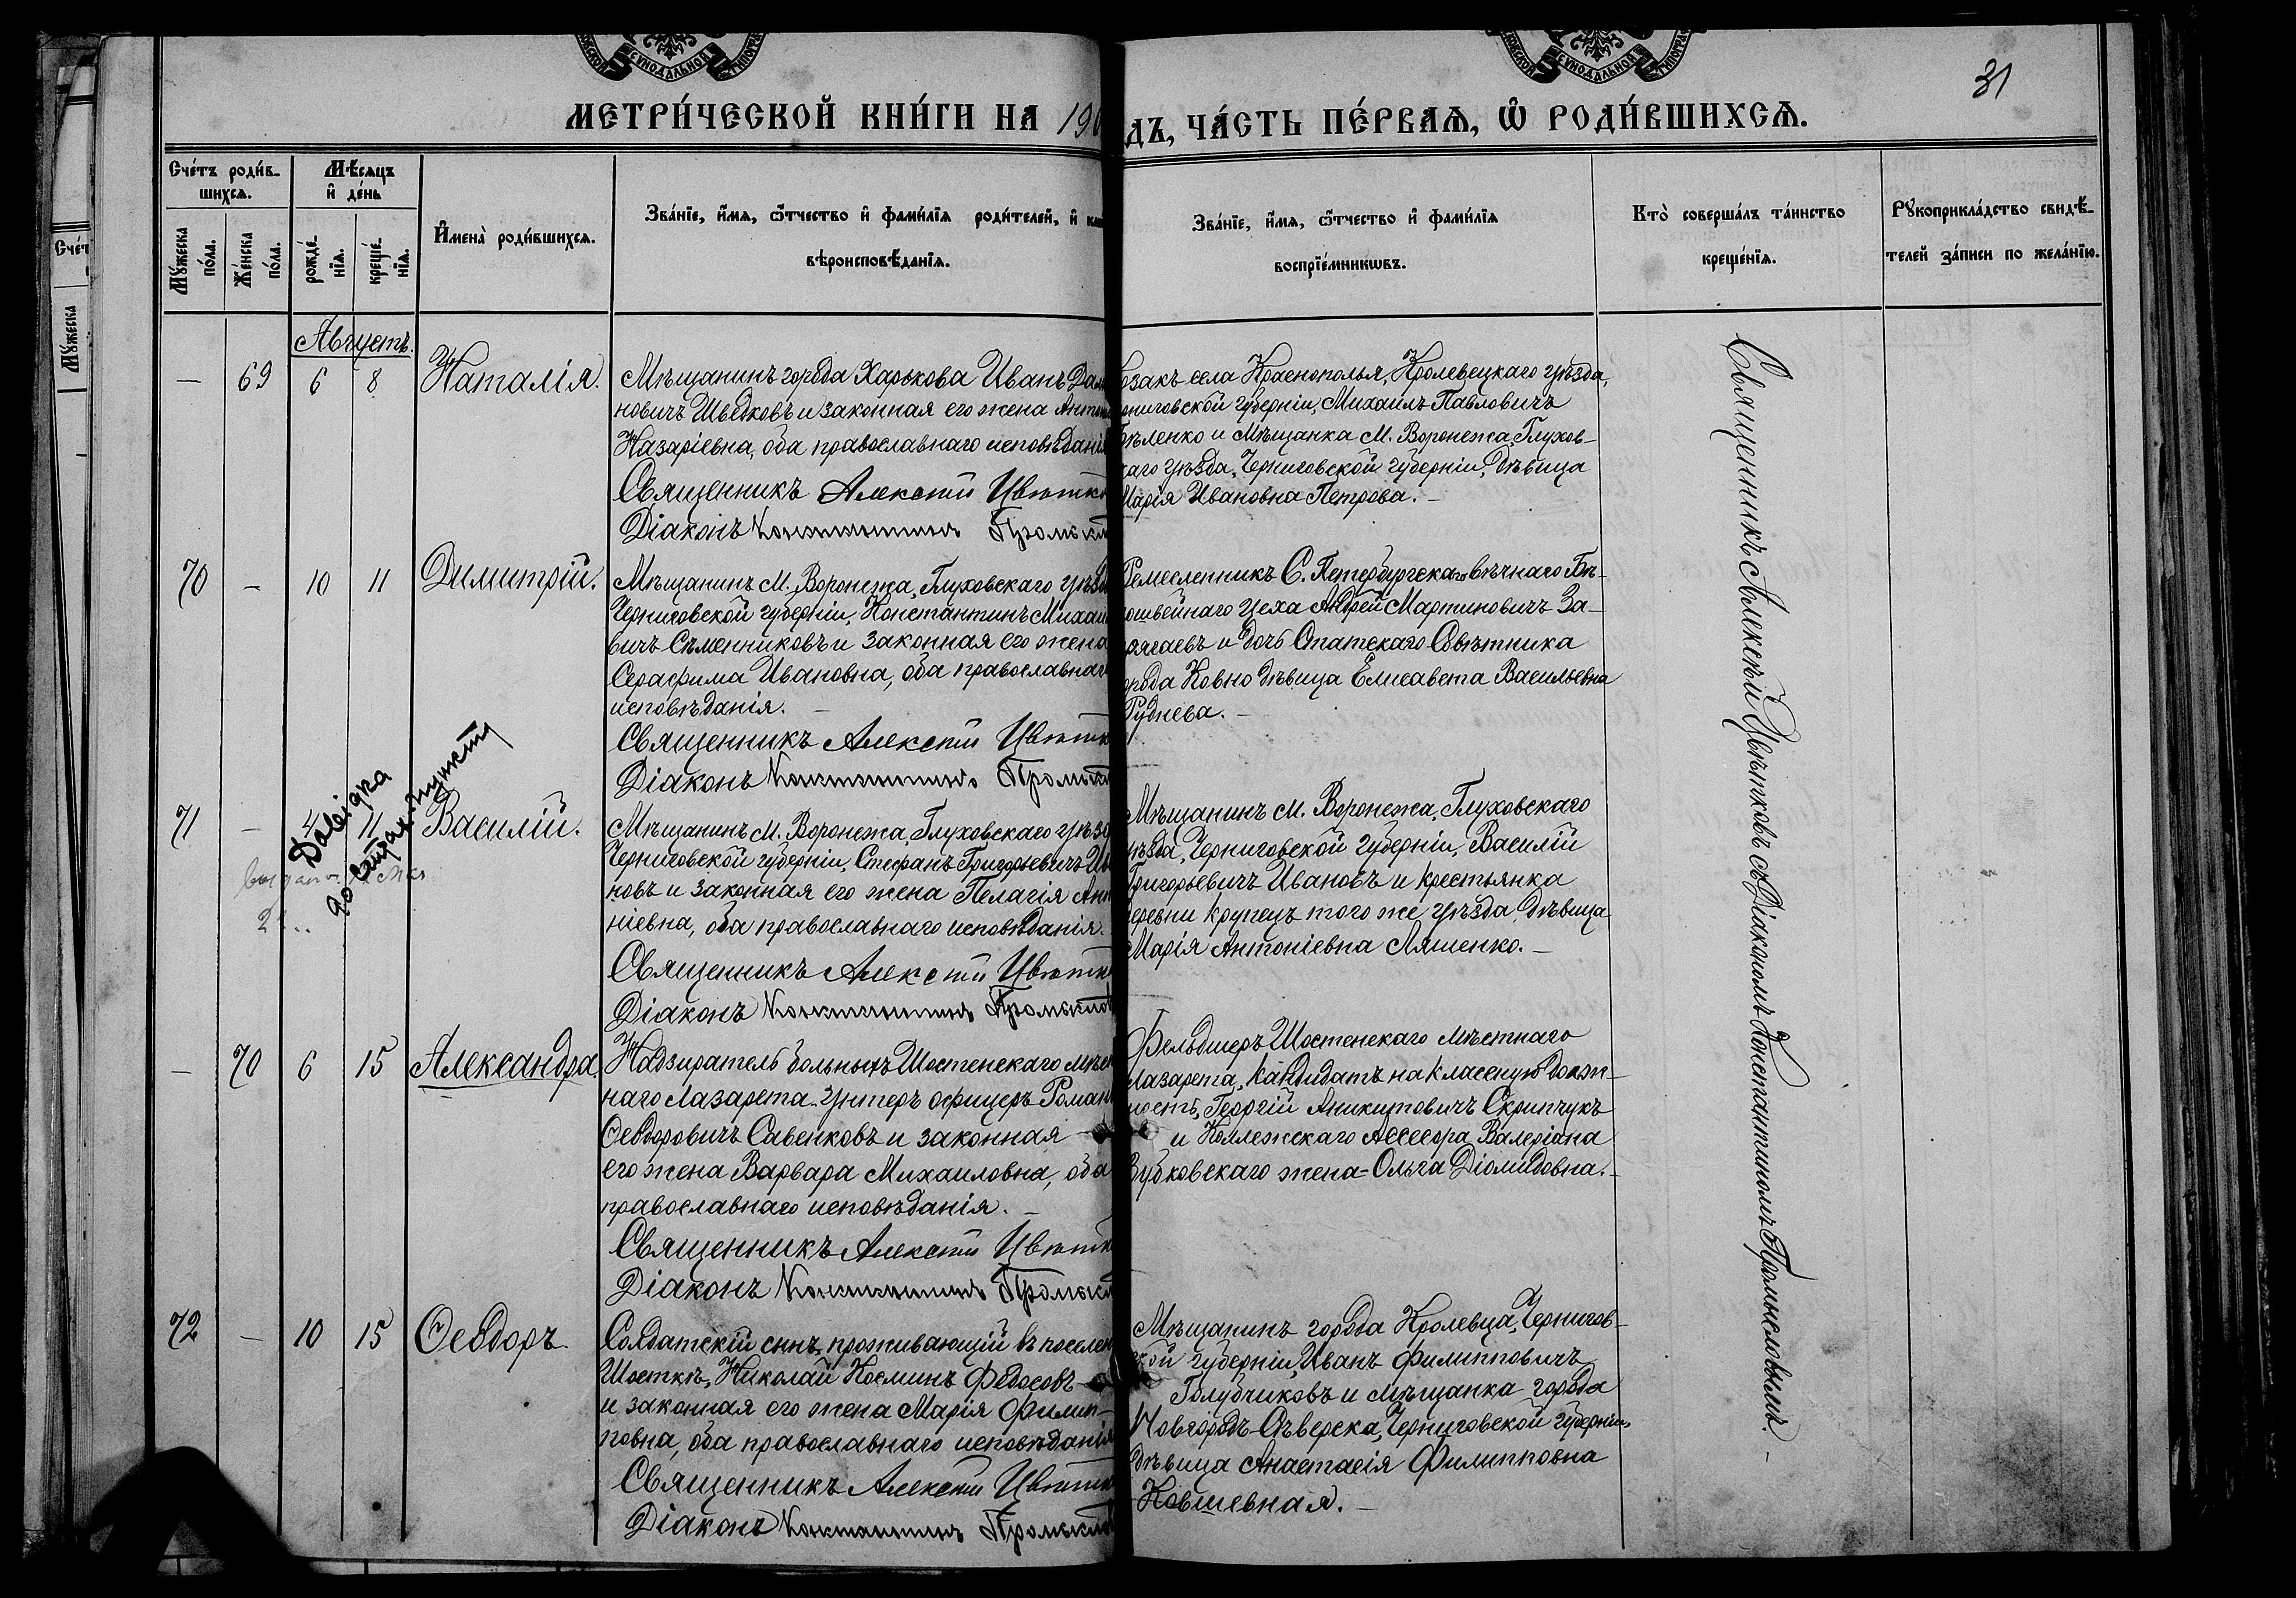 СѴНОДАЛЬНОЙ
СѴНОДАЛЬНОЙ
31
МЕТРИ́ЧЕСКОЙ КНИ́ГИ НА 190
ДЪ, ЧА́СТЬ ПЕ́РВАѦ, Ѡ РОДИ́ВШИХСѦ.
Сче́тъ роди́в-
шихсѧ.
Мѣ́сяцъ
и де́нь
Мꙋ́жеска
по́ла.
Же́нска
по́ла.
рожде́-
нїѧ.
креще́-
нїѧ.
И҆мена̀ роди́вшихсѧ.
Зва́нїе, и҆́мѧ, ѻ҆́тчество и҆ фами́лїѧ роди́телей, и҆
вѣроисповѣ́данїѧ.
Зва́нїе, и҆́мѧ, ѻ҆́тчество и҆ фами́лїѧ
воспрїе́мникѡвъ.
Кто̀ соверша́лъ та́инство
креще́нїѧ.
Рꙋкоприкла́дство свидѣ́-
телей за́писи по жела́нїю.
Августъ.
— 69 6 8 Наталія.
Мѣщанинъ города Харькова Иванъ
новичъ Шведковъ и законная его жена
Назаріевна, оба православнаго исповѣданія
Священникъ Алексѣй Цвѣтк
Діаконъ Константинъ Промысл
козакъ села Краснополья, Кролевецкаго уѣзда,
рниговской губерніи, Михаилъ Павловичъ
ѣленко и Мѣщанка М. Воронежа, Глухов-
каго уѣзда, Черниговской губерніи, дѣвица
Марія Ивановна Петрова. —
70 — 10 11 Димитрій.
Мѣщанинъ М. Воронежа, Глуховскаго уѣзд
Черниговской губерніи, Константинъ Михаи
вичъ Сѣменниковъ и законная его жена
Серафима Ивановна, оба православнаго
исповѣданія. —
Священникъ Алексѣй Цвѣтк
Діаконъ Константинъ Промысл
Ремесленникъ С. Петербургскаго вѣчнаго Бѣ-
лошвейнаго цеха Андрей Мартиновичъ За-
и дочь Статскаго Совѣтника
города Ковно дѣвица Елисавета Васильевна
Руднева. —
71 — 4 11 Василій.
Довідка
до страх. пункта
Мѣщанинъ М. Воронежа, Глуховскаго уѣзд
Черниговской губерніи, Стефанъ Григорьевичъ Ив
новъ и законная его жена Пелагія Ант
ніевна, оба православнаго исповѣданія.
Священникъ Алексѣй Цвѣтк
Діаконъ Константинъ Промыслов
Мѣщанинъ М. Воронежа, Глуховскаго
уѣзда, Черниговской губерніи, Василій
Григорьевичъ Ивановъ и крестьянка
деревни Крупецъ того же уѣзда, дѣвица
Марія Антоніевна Ляшенко. —
— 70 6 15 Александра.
Надзиратель больныхъ Шостенскаго мѣст
наго Лазарета Унтеръ офицеръ Роман
Ѳеодоровичъ Савенковъ и законная
его жена Варвара Михаиловна, оба
православнаго исповѣданія. —
Священникъ Алексѣй Цвѣтк
Діаконъ Константинъ Промысл
Фельдшеръ Шостенскаго мѣстнаго
Лазарета, кандидатъ на классную долж-
ность, Георгій Аникитовичъ Скрипчукъ
и Коллежскаго Ассесора Валеріана
Зубковскаго жена = Ольга Діомидовна. —
72 — 10 15 Ѳеодоръ.
Солдатскій сынъ, проживающій въ поселен
Шосткѣ, Николай Косминъ Федосовъ
и законная его жена Марія Филип-
повна, оба православнаго исповѣданія
Священникъ Алексѣй Цвѣтк
Діаконъ Константинъ Промыслов
Мѣщанинъ города Кролевца, Чернигов-
ской губерніи, Иванъ Филипповичъ
Голубчиковъ и мѣщанка города
Новгородъ-Сѣверска, Черниговской губерніи
дѣвица Анастасія Филипповна
Ковшевная. —
Священникъ Алексѣй Цвѣтковъ съ Діакономъ Константиномъ Промысловымъ. —